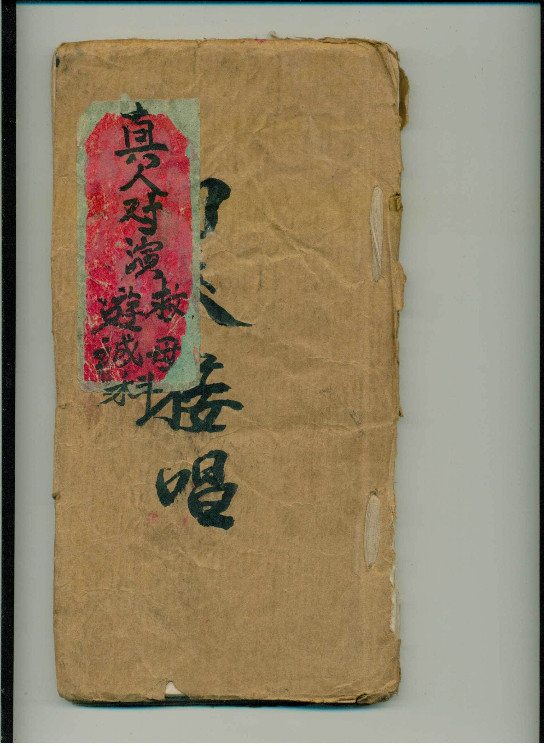 真人对演
救母
遊城科
接唱